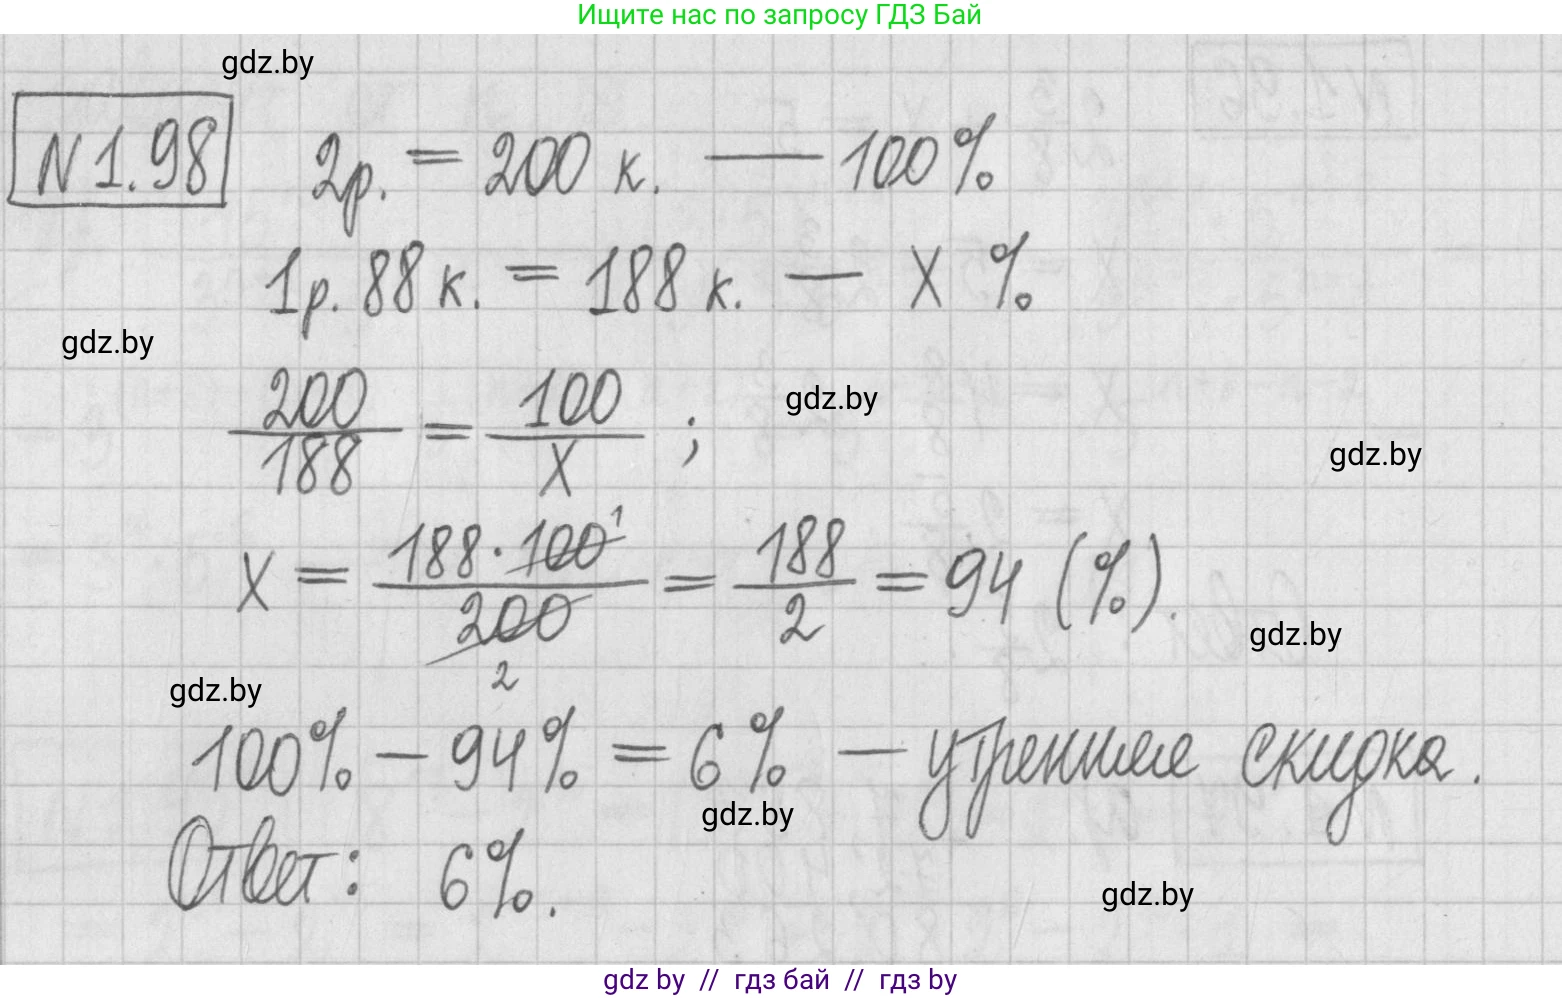 Ищите нас по запросу ГДЗ Бай
gdz.by
N 1.98 2р. = 200 к. — 100%
1р. 88 к. = 188 к. — X %
gdz.by
200/188 = 100/X ;
gdz.by
gdz.by
X = 188·100 1/200 2 = 188/2 = 94 (%).
gdz.by
gdz.by
100% – 94% = 6% – утренняя скидка.
gdz.by
Ответ: 6%.
gdz.by
gdz by // гдз бай // гдз by